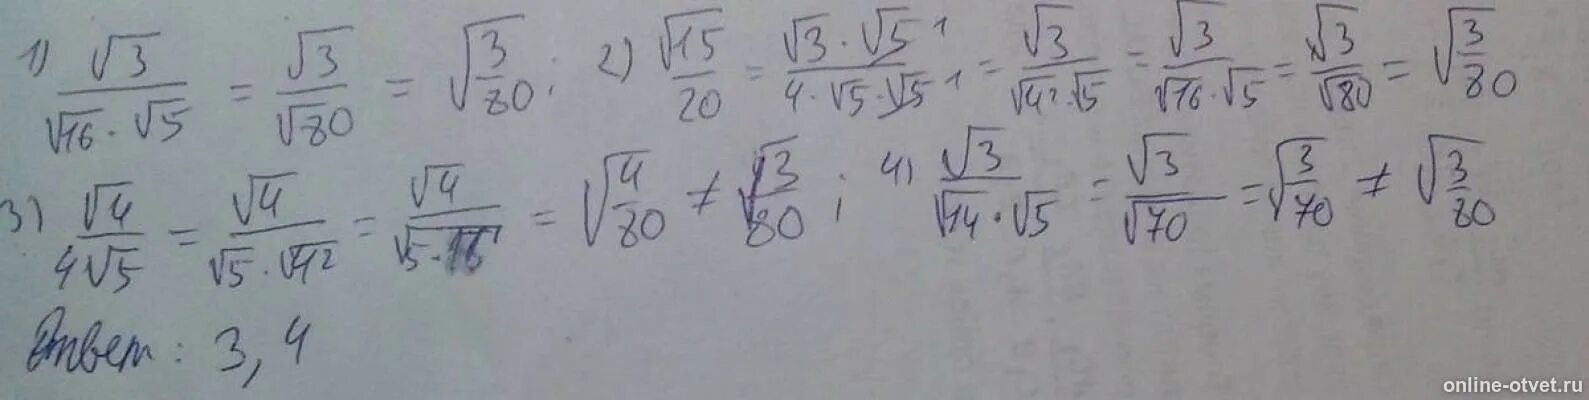 1) √3/(√16·√5) = √3/√80 = √(3/80); 2) √15/20 = (√3·√5 1)/(4·√5·√5 1) = √3/(√4²·√5) = √3/(√16·√5) = √3/√80 = √(3/80)
3) √4/(4√5) = √4/(√5·√4²) = √4/√(5·16) = √(4/80) ≠ √(3/80); 4) √3/(√14·√5) = √3/√70 = √(3/70) ≠ √(3/80)
Ответ: 3, 4
online-otvet.ru